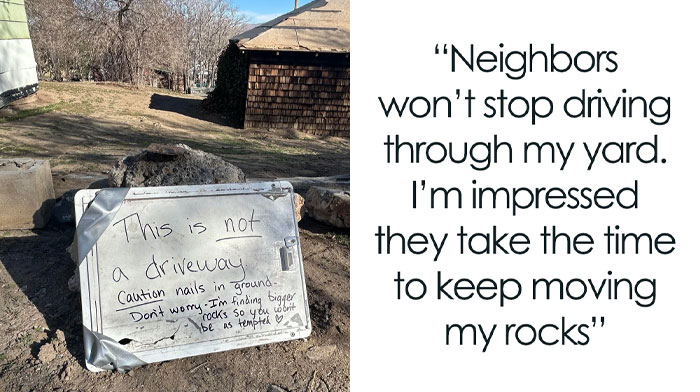 This is not
a driveway
Caution nails in ground.
Don't worry. I'm finding bigger
rocks so you won't
be as tempted ♡
“Neighbors
won’t stop driving
through my yard.
I’m impressed
they take the time
to keep moving
my rocks”